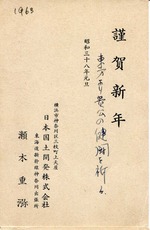 1963
謹賀新年
東方より貴公の健闘を祈る
昭和三十八年元旦
横浜市神奈川区六枚町上大尾
日本国土開発株式会社
東海道新幹線神奈川出張所
瀬木重弥